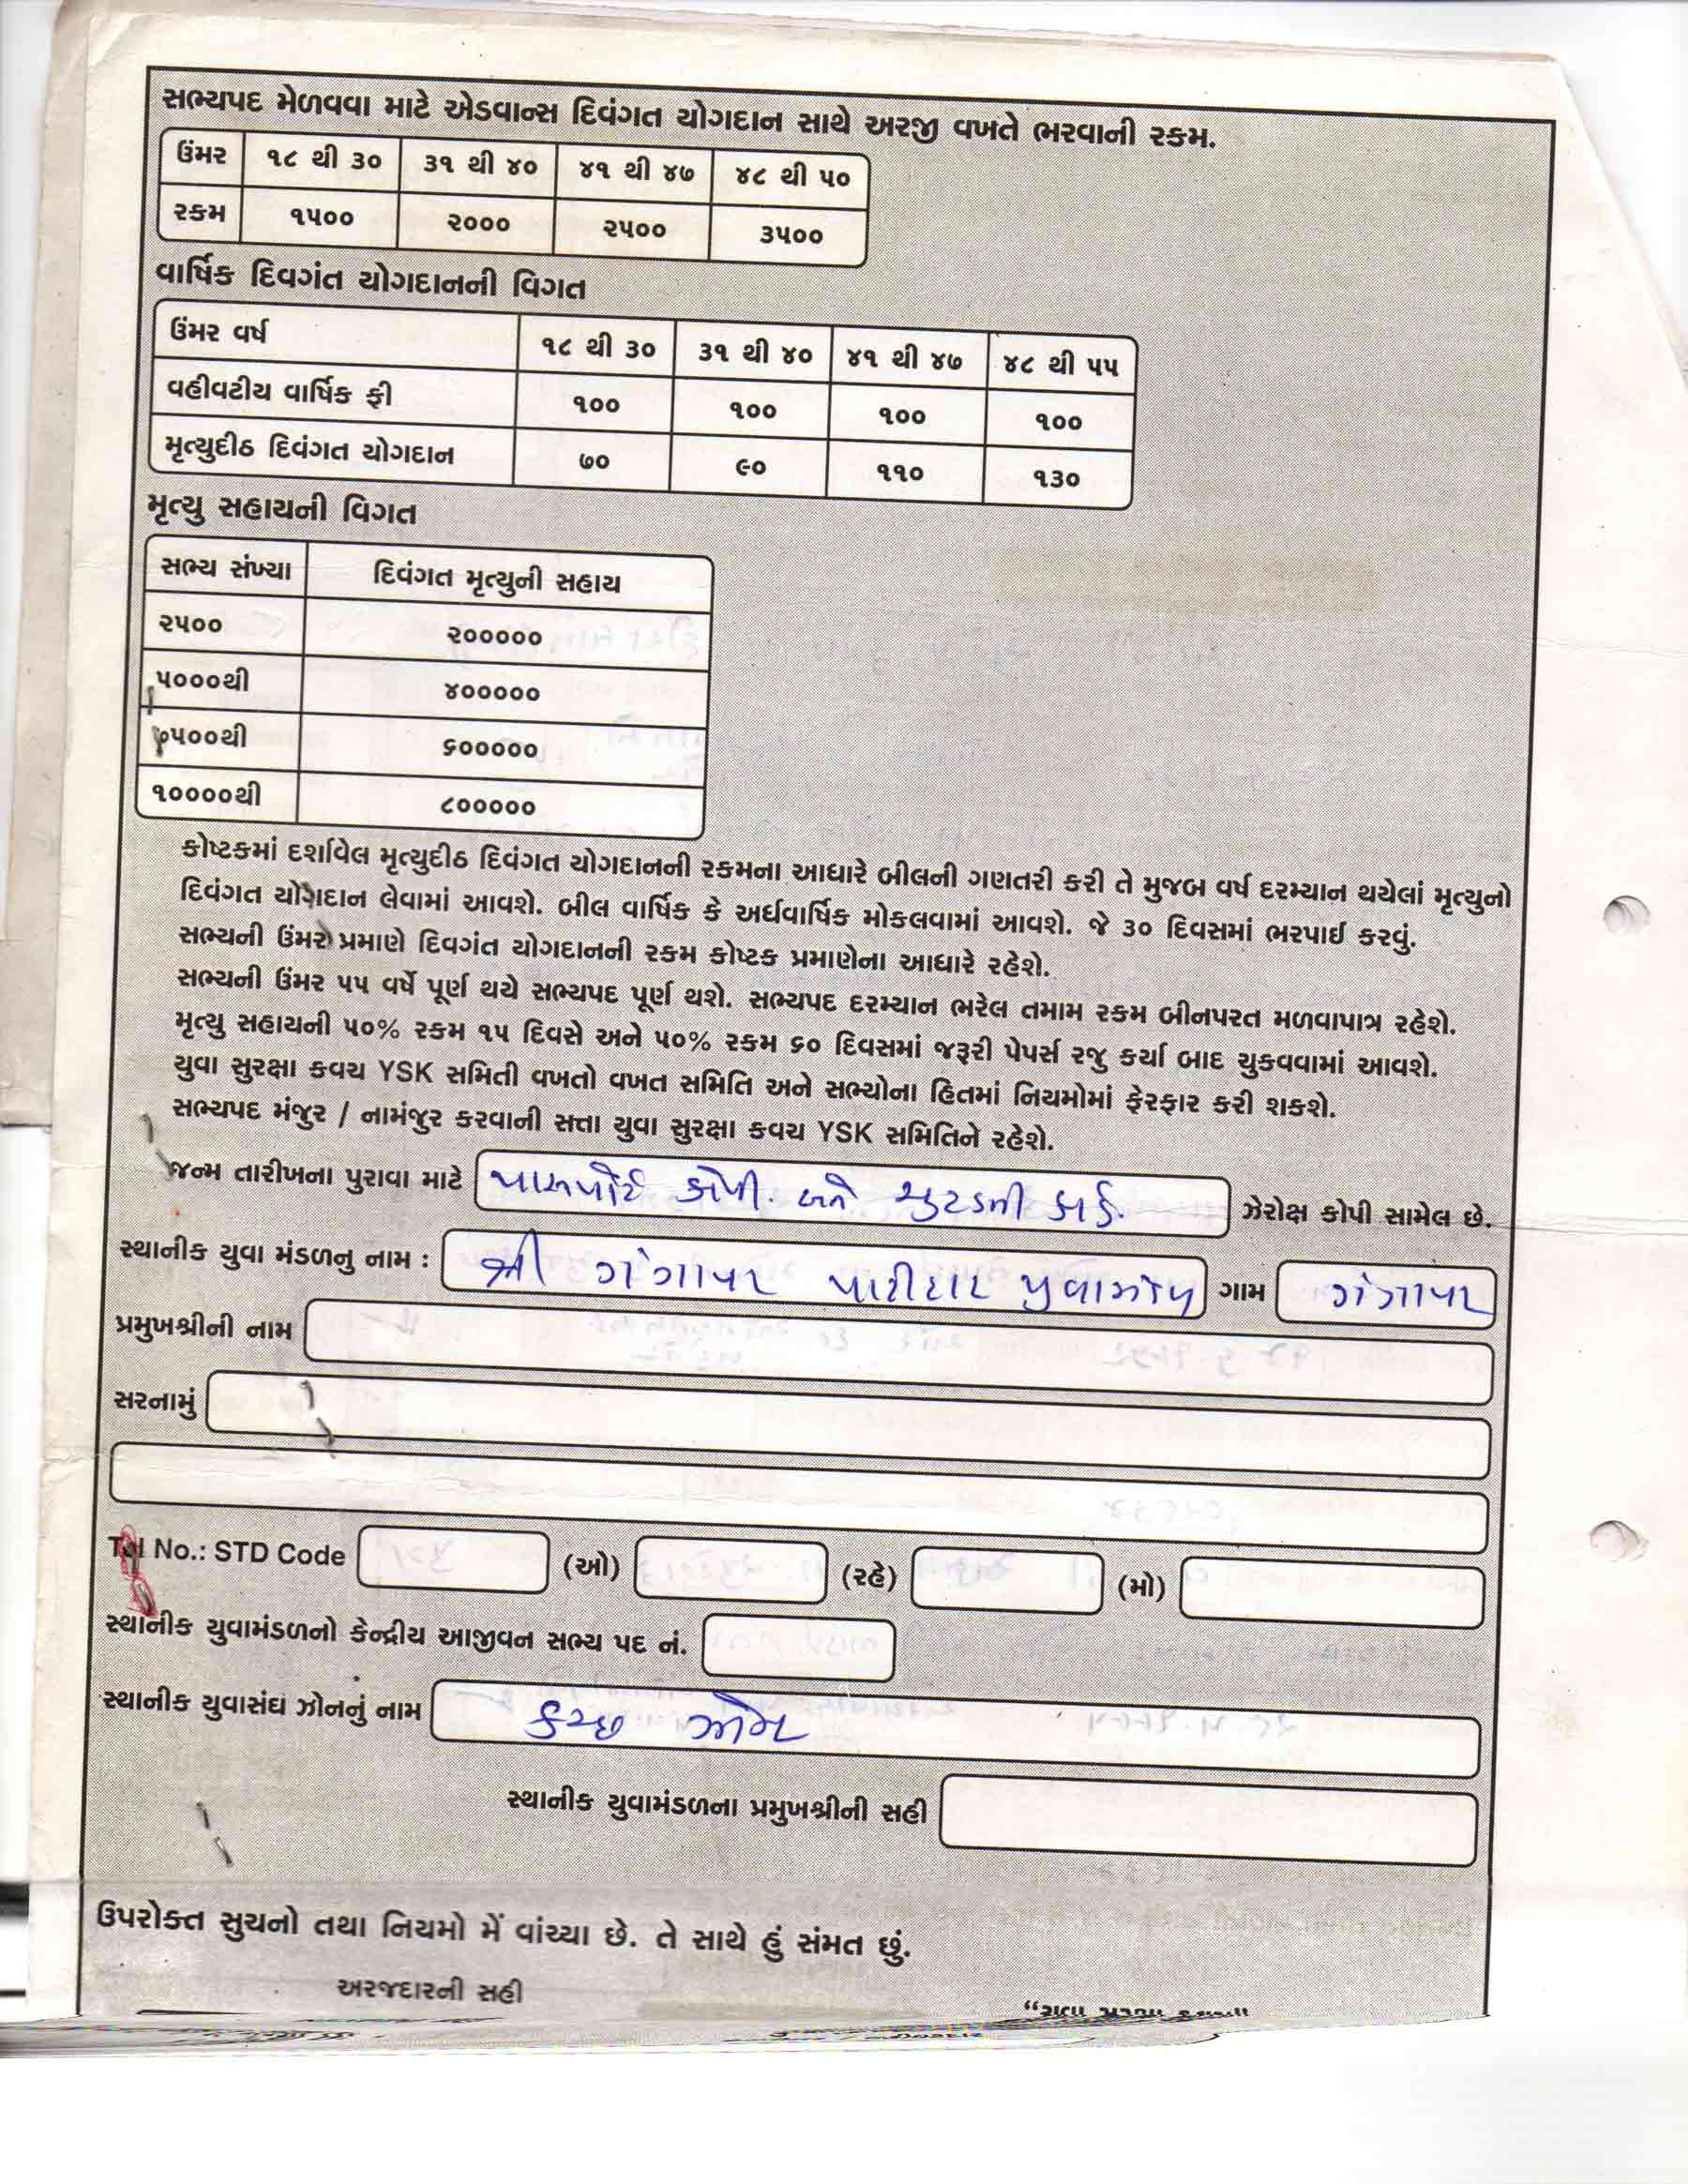 સભ્યપદ મેળવવા માટે એડવાન્સ દિવંગત યોગદાન સાથે અરજી વખતે ભરવાની રકમ.
ઉંમર ૧૮ થી ૩૦ ૩૧ થી ૪૦ ૪૧ થી ૪૭ ૪૮ થી ૫૦
રકમ ૧૫૦૦ ૨૦૦૦ ૨૫૦૦ ૩૫૦૦
વાર્ષિક દિવગંત યોગદાનની વિગત
ઉંમર વર્ષ ૧૮ થી ૩૦ ૩૧ થી ૪૦ ૪૧ થી ૪૭ ૪૮ થી ૫૫
વહીવટીય વાર્ષિક ફી ૧૦૦ ૧૦૦ ૧૦૦ ૧૦૦
મૃત્યુદીઠ દિવંગત યોગદાન ૭૦ ૯૦ ૧૧૦ ૧૩૦
મૃત્યુ સહાયની વિગત
સભ્ય સંખ્યા દિવંગત મૃત્યુની સહાય
૨૫૦૦ ૨૦૦૦૦૦
૫૦૦૦થી ૪૦૦૦૦૦
૭૫૦૦થી ૬૦૦૦૦૦
૧૦૦૦૦થી ૮૦૦૦૦૦
કોષ્ટકમાં દર્શાવેલ મૃત્યુદીઠ દિવંગત યોગદાનની રકમના આધારે બીલની ગણતરી કરી તે મુજબ વર્ષ દરમ્યાન થયેલાં મૃત્યુનો
દિવંગત યોગદાન લેવામાં આવશે. બીલ વાર્ષિક કે અર્ધવાર્ષિક મોકલવામાં આવશે. જે ૩૦ દિવસમાં ભરપાઈ કરવું.
સભ્યની ઉંમર પ્રમાણે દિવગંત યોગદાનની રકમ કોષ્ટક પ્રમાણેના આધારે રહેશે.
સભ્યની ઉંમર ૫૫ વર્ષે પૂર્ણ થયે સભ્યપદ પૂર્ણ થશે. સભ્યપદ દરમ્યાન ભરેલ તમામ રકમ બીનપરત મળવાપાત્ર રહેશે.
મૃત્યુ સહાયની ૫૦% રકમ ૧૫ દિવસે અને ૫૦% રકમ ૬૦ દિવસમાં જરૂરી પેપર્સ રજુ કર્યા બાદ ચુકવવામાં આવશે.
યુવા સુરક્ષા કવચ YSK સમિતી વખતો વખત સમિતિ અને સભ્યોના હિતમાં નિયમોમાં ફેરફાર કરી શકશે.
સભ્યપદ મંજુર / નામંજુર કરવાની સત્તા યુવા સુરક્ષા કવચ YSK સમિતિને રહેશે.
જન્મ તારીખના પુરાવા માટે પાસપોર્ટ કોપી. અને ચુટડની કાર્ડ. ઝેરોક્ષ કોપી સામેલ છે.
સ્થાનીક યુવા મંડળનુ નામ : શ્રી ગંગાપર પાટીદાર યુવામંડળ ગામ ગંગાપર
પ્રમુખશ્રીની નામ
સરનામું
Tel No.: STD Code (ઓ) (રહે) (મો)
સ્થાનીક યુવામંડળનો કેન્દ્રીય આજીવન સભ્ય પદ નં.
સ્થાનીક યુવાસંઘ ઝોનનું નામ કચ્છ ઝોન
સ્થાનીક યુવામંડળના પ્રમુખશ્રીની સહી
ઉપરોક્ત સુચનો તથા નિયમો મેં વાંચ્યા છે. તે સાથે હું સંમત છું.
અરજદારની સહી